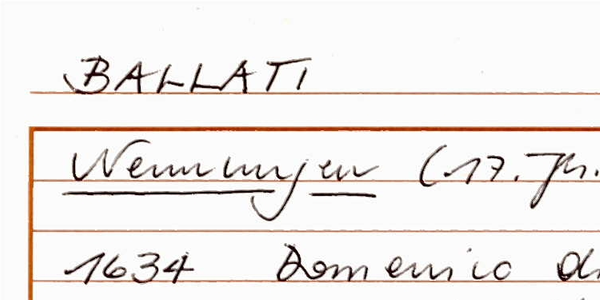 BALLATI
Nennungen (17. Jh.
1634 Domenico di